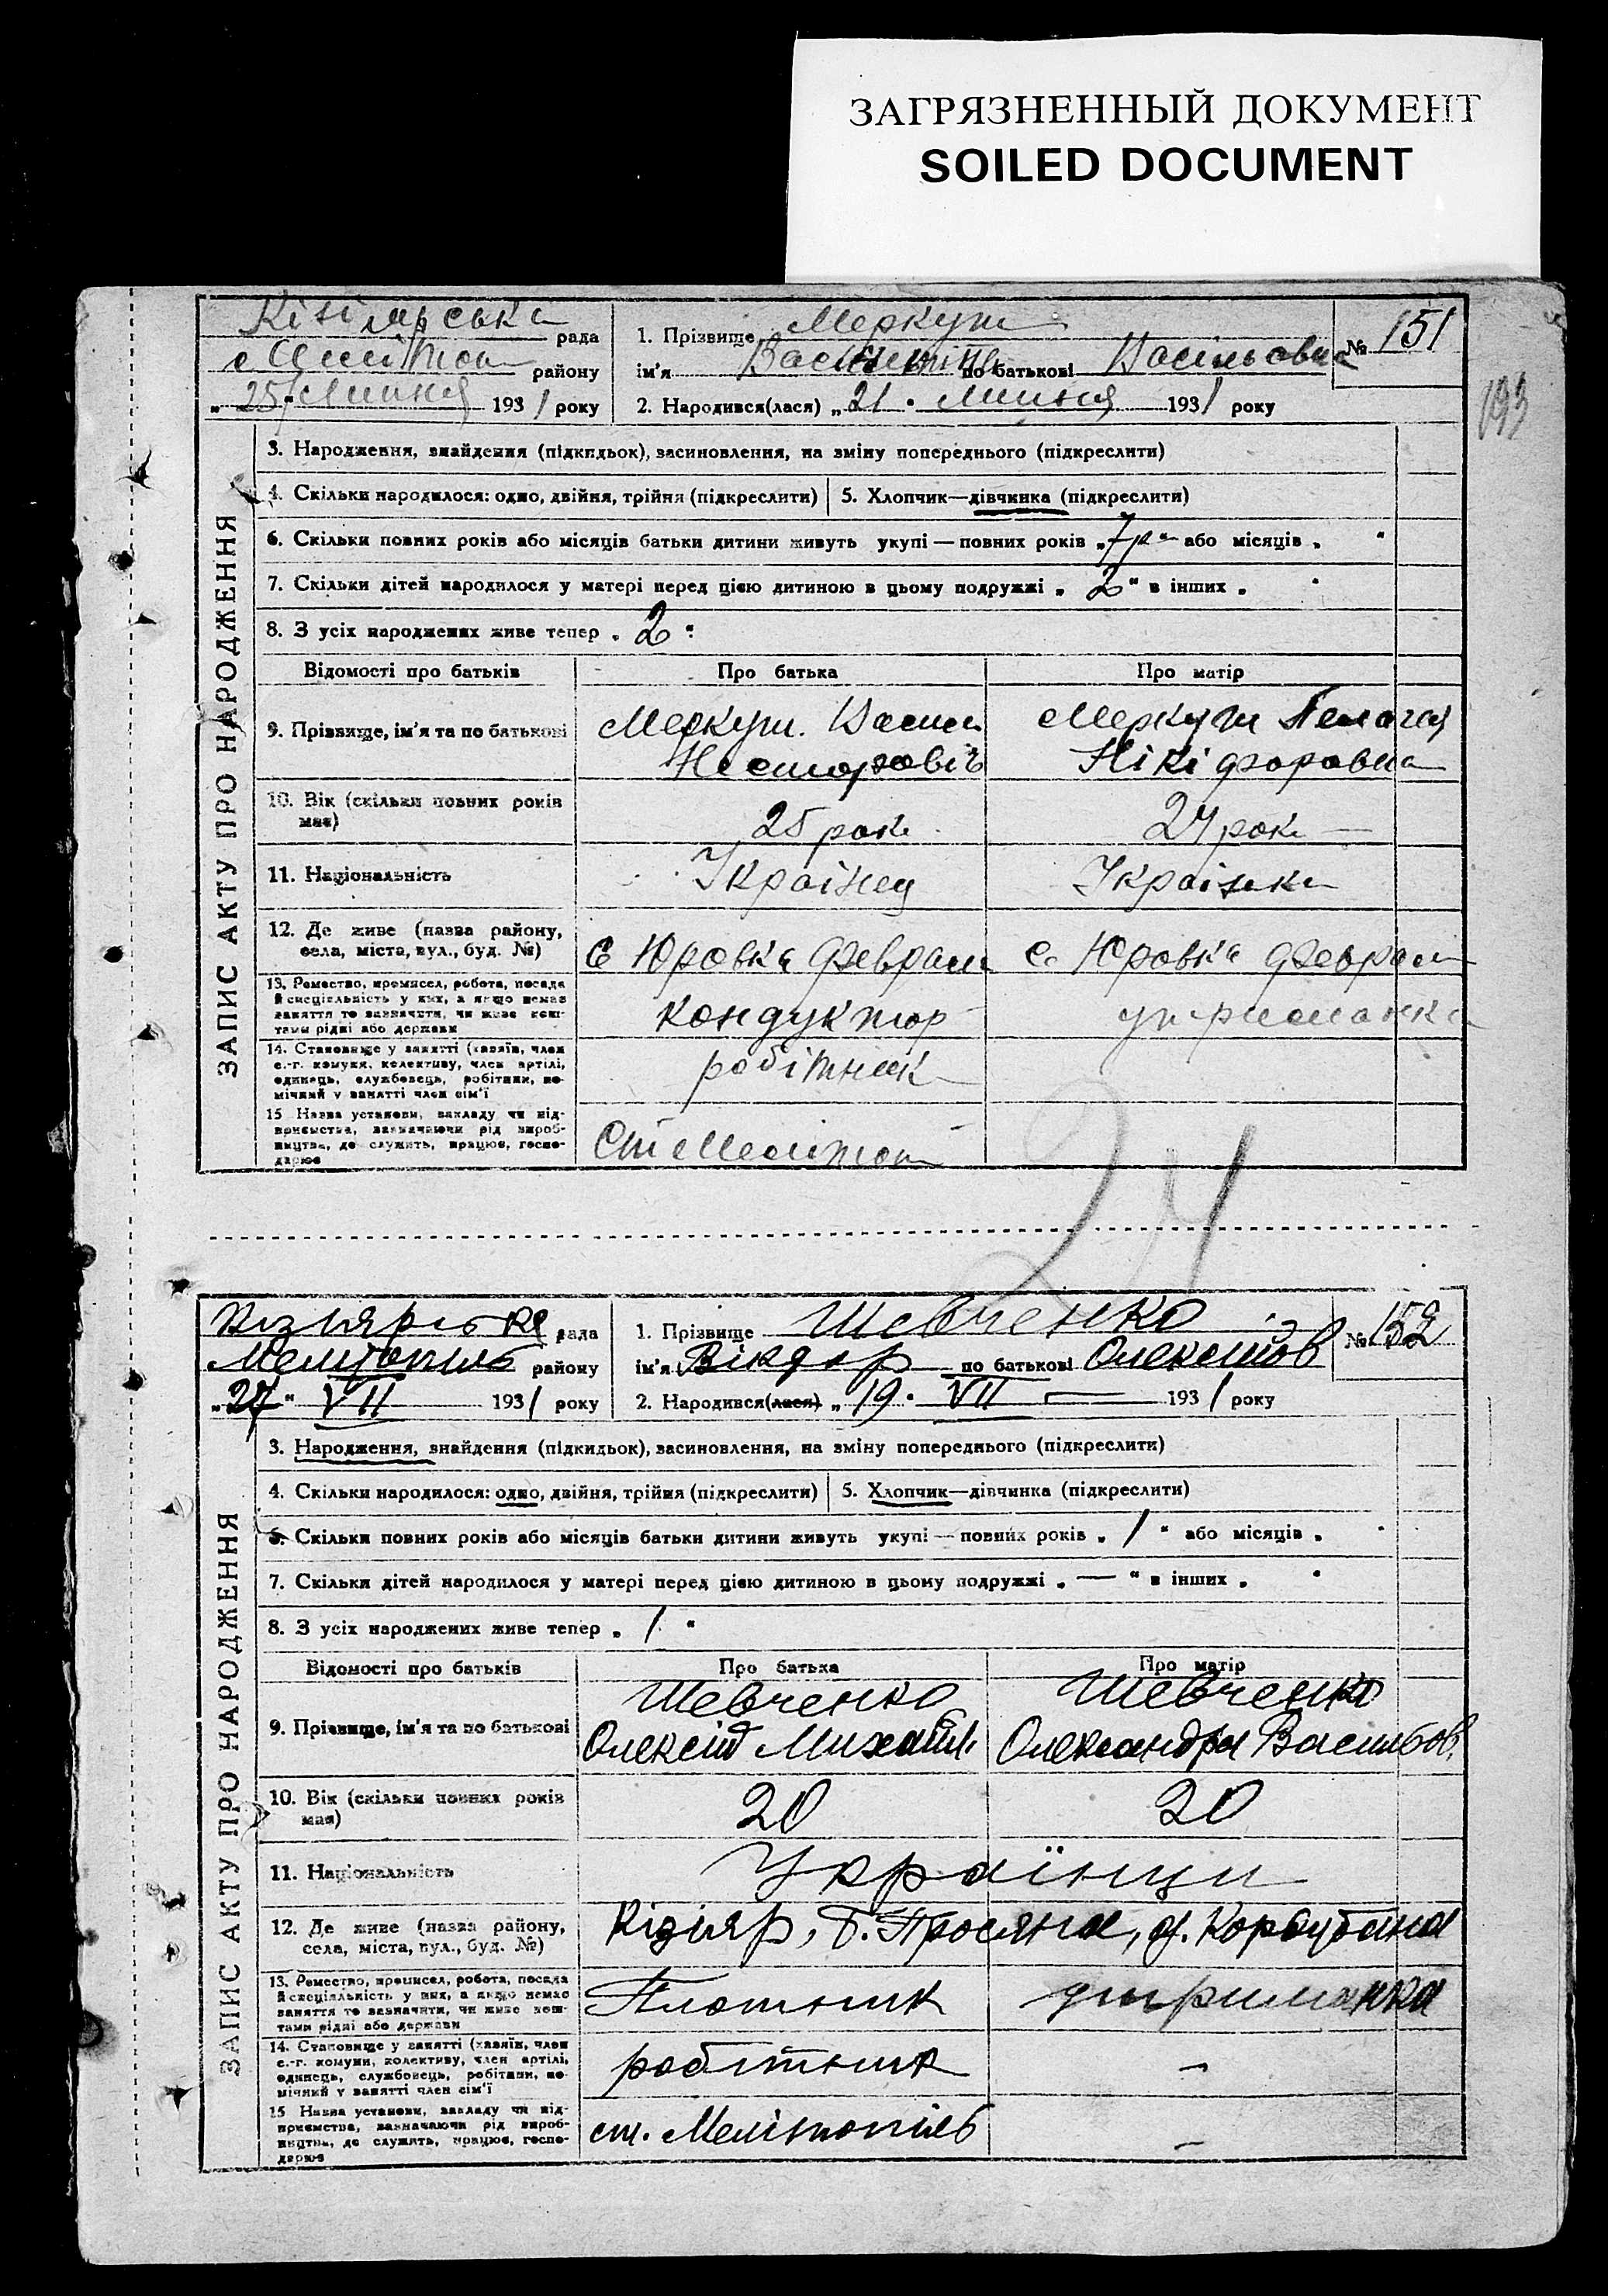 ЗАГРЯЗНЕННЫЙ ДОКУМЕНТ
SOILED DOCUMENT
193
ЗАПИС АКТУ ПРО НАРОДЖЕННЯ
Кізіярська рада
Меліто́п району
„25" Липня 1931 року
1. Прізвище Меркут
ім'я по батькові Васільовна
№ 151
2. Народився(лася) „21" Липня 1931 року
3. Народження, знайдення (підкидьок), засиновлення, на зміну попереднього (підкреслити)
4. Скільки народилося: одно, двійня, трійня (підкреслити) 5. Хлопчик—дівчинка (підкреслити)
6. Скільки повних років або місяців батьки дитини живуть укупі — повних років „7р" або місяців „ "
7. Скільки дітей народилося у матері перед цією дитиною в цьому подружжі „2" в інших „ "
8. З усіх народжених живе тепер „2"
Відомості про батьків Про батька Про матір
9. Прізвище, ім'я та по батькові Меркут. Васил Меркут Пелагея
Несторовіч Нікіфоровна
10. Вік (скільки повних років має) 25 рок. 24 рок.
11. Національність Українец Українка
12. Де живе (назва району, села, міста, вул., буд. №) с Юровка Феврал с. Юровка Феврал
13. Ремество, промисел, робота, посада й спеціяльність у них, а якщо немає заняття то зазначити, чи живе коштами рідні або держави кондуктор утриманка
14. Становище у занятті (хазяїн, член с.-г. комуни, колективу, член артілі, одинець, службовець, робітник, помічний у занятті член сім'ї робітник
15 Назва установи, закладу чи підприємства, зазначаючи рід виробництва, де служить, працює, господарює Ст Меліто́п
24
ЗАПИС АКТУ ПРО НАРОДЖЕННЯ
Кізіярська рада
Мелітопіль району
„27" VII 1931 року
1. Прізвище Шевченко
ім'я Віктор по батькові Олексійов
№ 152
2. Народився(лася) „19" VII 1931 року
3. Народження, знайдення (підкидьок), засиновлення, на зміну попереднього (підкреслити)
4. Скільки народилося: одно, двійня, трійня (підкреслити) 5. Хлопчик—дівчинка (підкреслити)
6. Скільки повних років або місяців батьки дитини живуть укупі — повних років „1" або місяців „ "
7. Скільки дітей народилося у матері перед цією дитиною в цьому подружжі „—" в інших „ "
8. З усіх народжених живе тепер „1"
Відомості про батьків Про батька Про матір
9. Прізвище, ім'я та по батькові Шевченко Шевченко
Олексій Михайл. Олександра Васильов.
10. Вік (скільки повних років має) 20 20
11. Національність Українци
12. Де живе (назва району, села, міста, вул., буд. №) Кізіяр,
13. Ремество, промисел, робота, посада й спеціяльність у них, а якщо немає заняття то зазначити, чи живе коштами рідні або держави Плотник утриманка
14. Становище у занятті (хазяїн, член с.-г. комуни, колективу, член артілі, одинець, службовець, робітник, помічний у занятті член сім'ї робітник —
15 Назва установи, закладу чи підприємства, зазначаючи рід виробництва, де служить, працює, господарює ст. Мелітопіль —